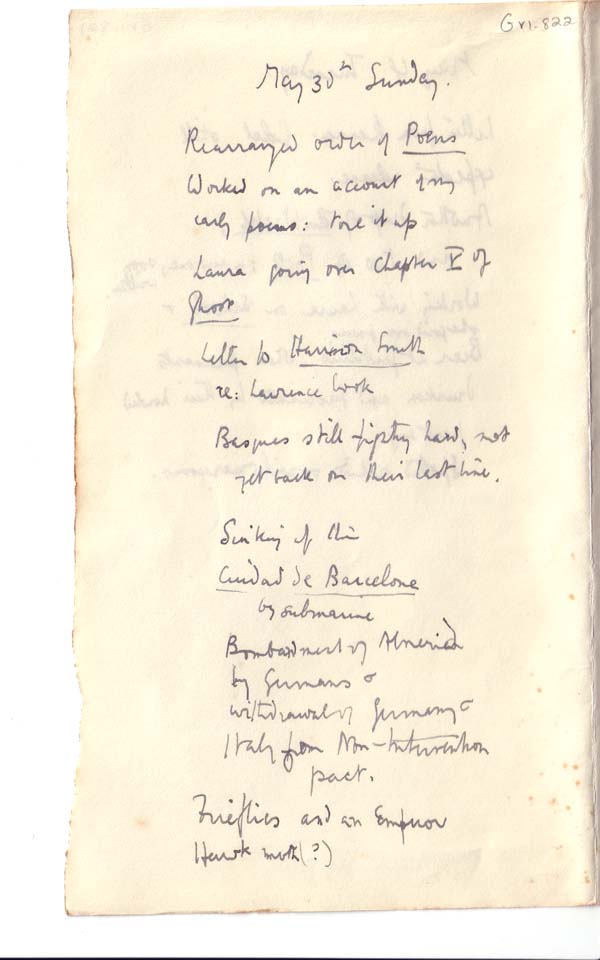 Gv1.822
May 30th Sunday.
Rearranged order of Poems
Worked on an account of my
early poems: tore it up
Laura going over Chapter V of
Letter to Harrison Smith
re: Lawrence book
Basques still fighting hard, not
yet back on their last line.
Sinking of the
Ciudad de Barcelone
by submarine
Bombardment of Almeria
by Germans &
withdrawal of Germany &
Italy from Non-Intervention
pact.
Fireflies and an Emperor
Hawk moth (?)